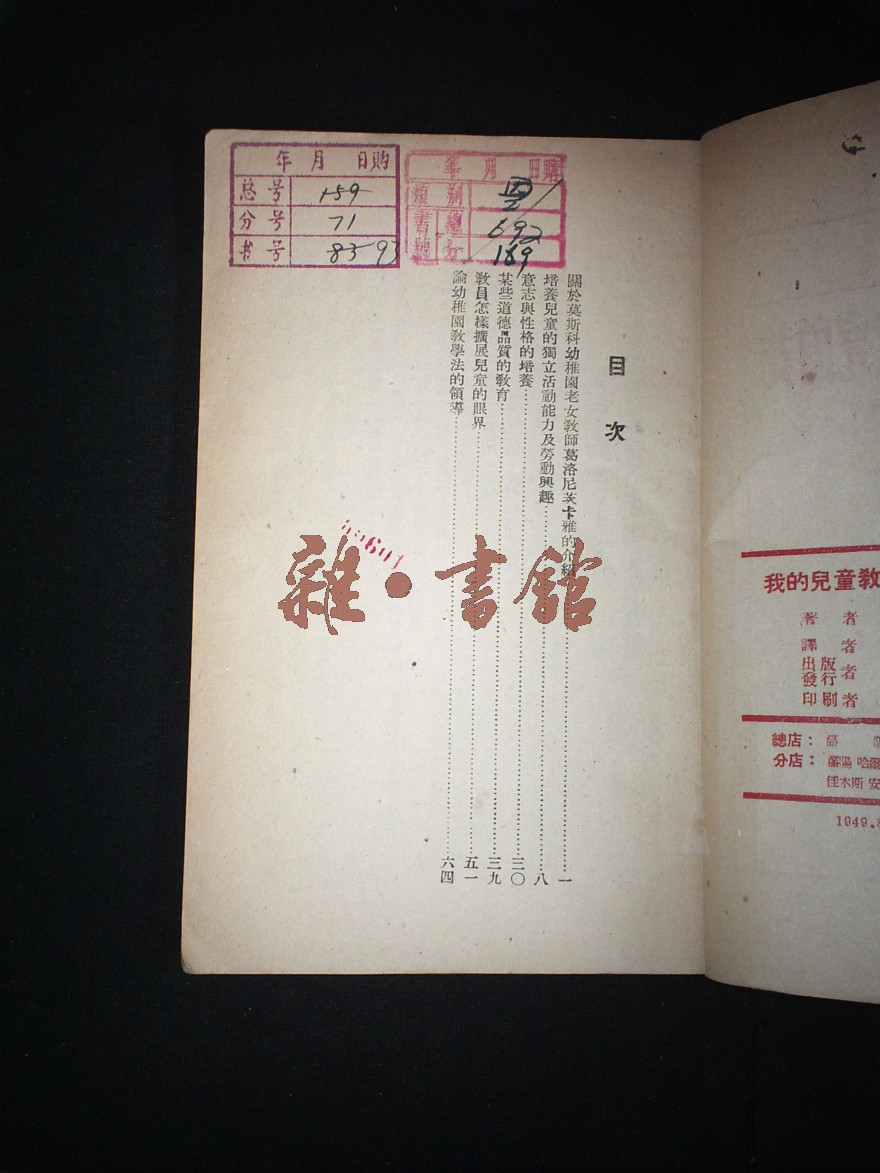 我的兒童教
著者
譯者
出版
發行者
印刷者
總店：
分店：瀋陽 哈爾
佳木斯 安
1949.8
目次
關於莫斯科幼稚園老女教師葛洛尼茨卡雅的介紹……一
培養兒童的獨立活動能力及勞動興趣……八
意志與性格的培養……三〇
某些道德品質的教育……三九
教員怎樣擴展兒童的眼界……五一
論幼稚園教學法的領導……六四
年 月 日購
類別
書號 總 692
分 189
年 月 日购
总号 159
分号 71
书号 8593
雜·書館